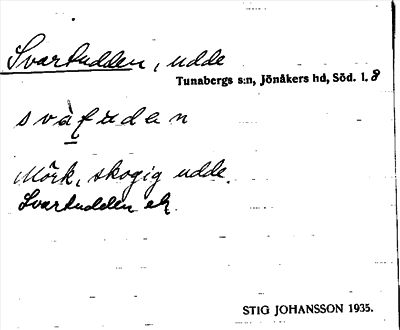 Svartudden, udde
Tunabergs s:n, Jönåkers hd, Söd. l. 8
Mörk, skogig udde.
Svartudden ek.
STIG JOHANSSON 1935.